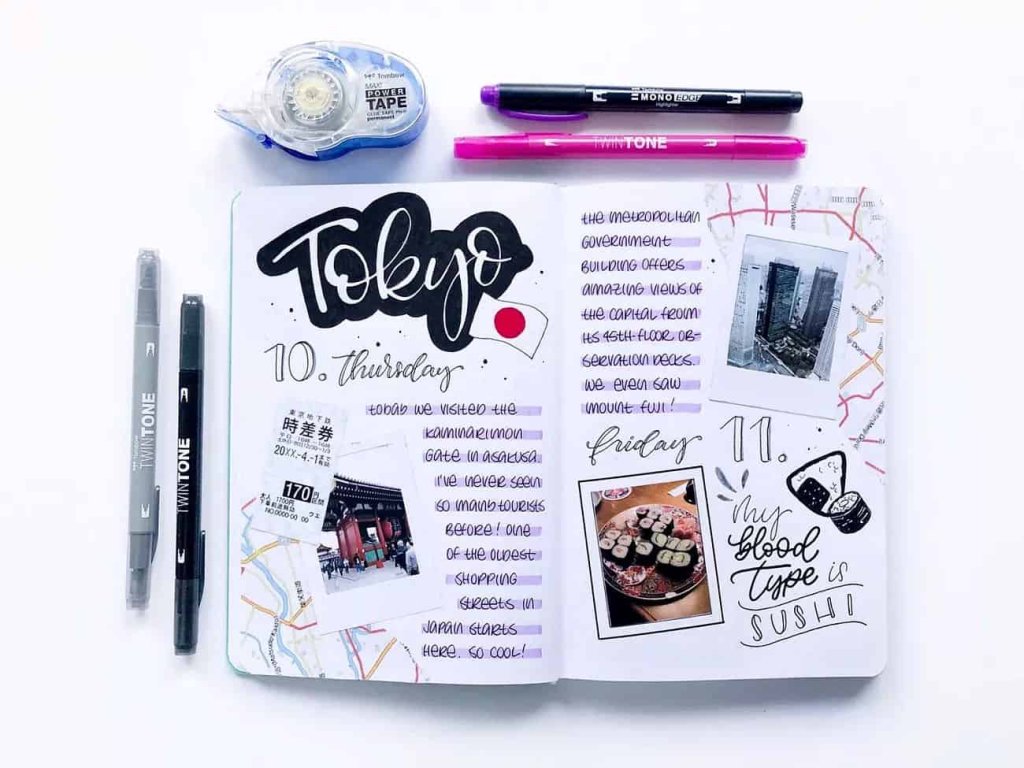 Tombow
MAXI
POWER
TAPE
GLUE TAPE
permanent
MONO EDGE
Highlighter
TWINTONE
TWINTONE
TWINTONE
Tokyo
10. Thursday
東京地下鉄
時差券
20XX.-4.-1まで
170円
区間
NO.0000-00 00
TODAY WE VISITED THE
KAMINARIMON
GATE IN ASAKUSA.
I'VE NEVER SEEN
SO MANY TOURISTS
BEFORE! ONE
OF THE OLDEST
SHOPPING
STREETS IN
JAPAN STARTS
HERE. SO COOL!
THE METROPOLITAN
GOVERNMENT
BUILDING OFFERS
AMAZING VIEWS OF
THE CAPITAL FROM
ITS 45TH-FLOOR OB-
SERVATION DECKS.
WE EVEN SAW
MOUNT FUJI!
friday 11.
My
blood
type is
SUSHI